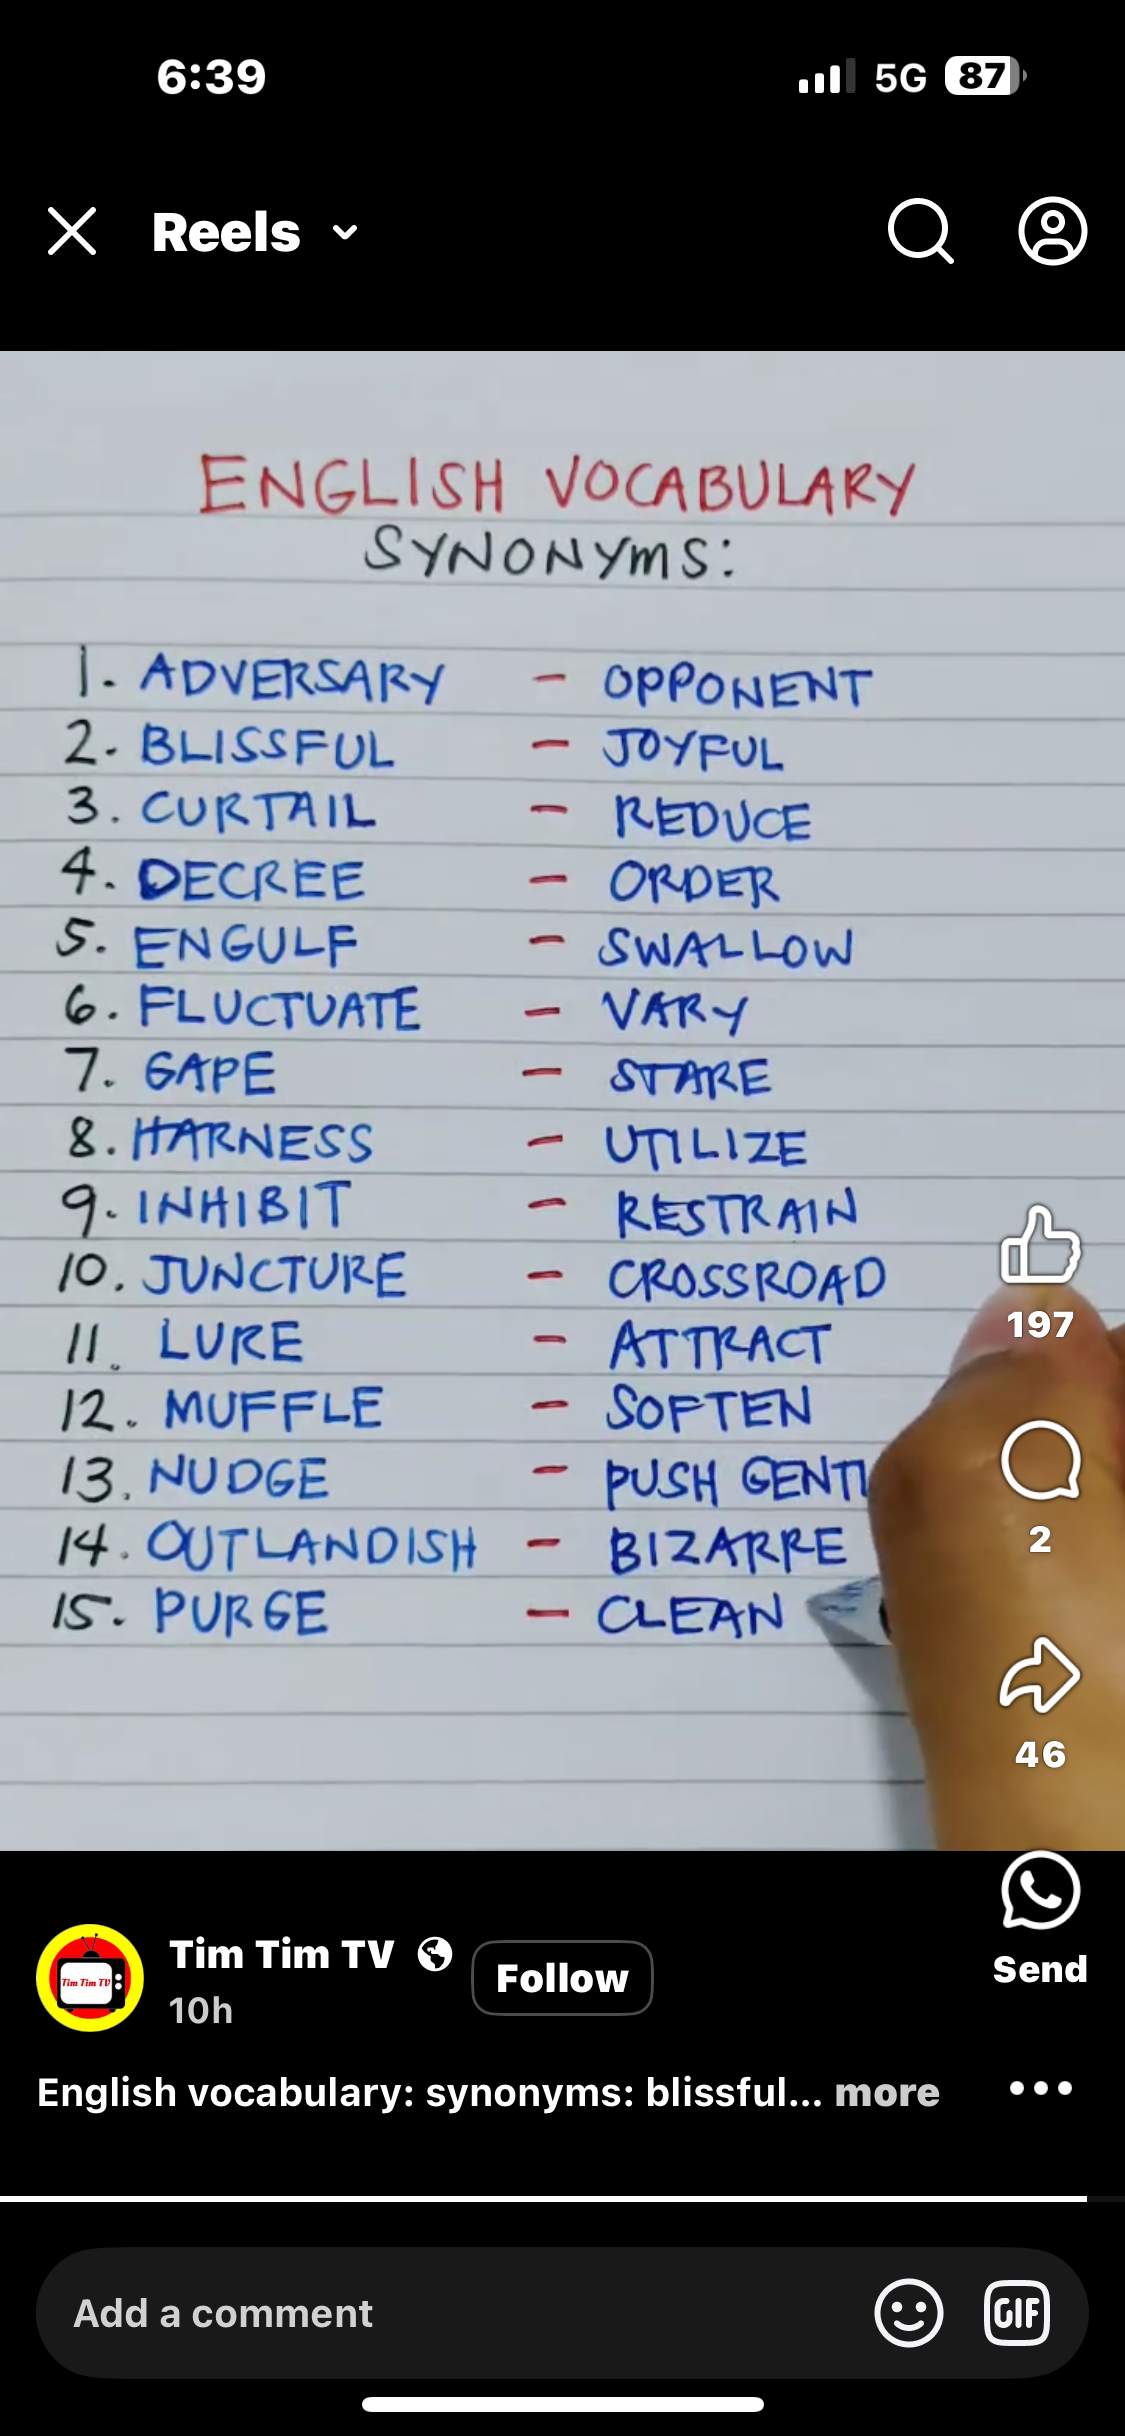 6:39
5G 87
Reels
ENGLISH VOCABULARY
SYNONYMS:
1. ADVERSARY - OPPONENT
2. BLISSFUL - JOYFUL
3. CURTAIL - REDUCE
4. DECREE - ORDER
5. ENGULF - SWALLOW
6. FLUCTUATE - VARY
7. GAPE - STARE
8. HARNESS - UTILIZE
9. INHIBIT - RESTRAIN
10. JUNCTURE - CROSSROAD
11. LURE - ATTRACT
12. MUFFLE - SOFTEN
13. NUDGE - PUSH
14. OUTLANDISH - BIZARRE
15. PURGE - CLEAN
197
2
46
Send
Tim Tim TV
Tim Tim TV
Follow
10h
English vocabulary: synonyms: blissful... more
Add a comment
GIF